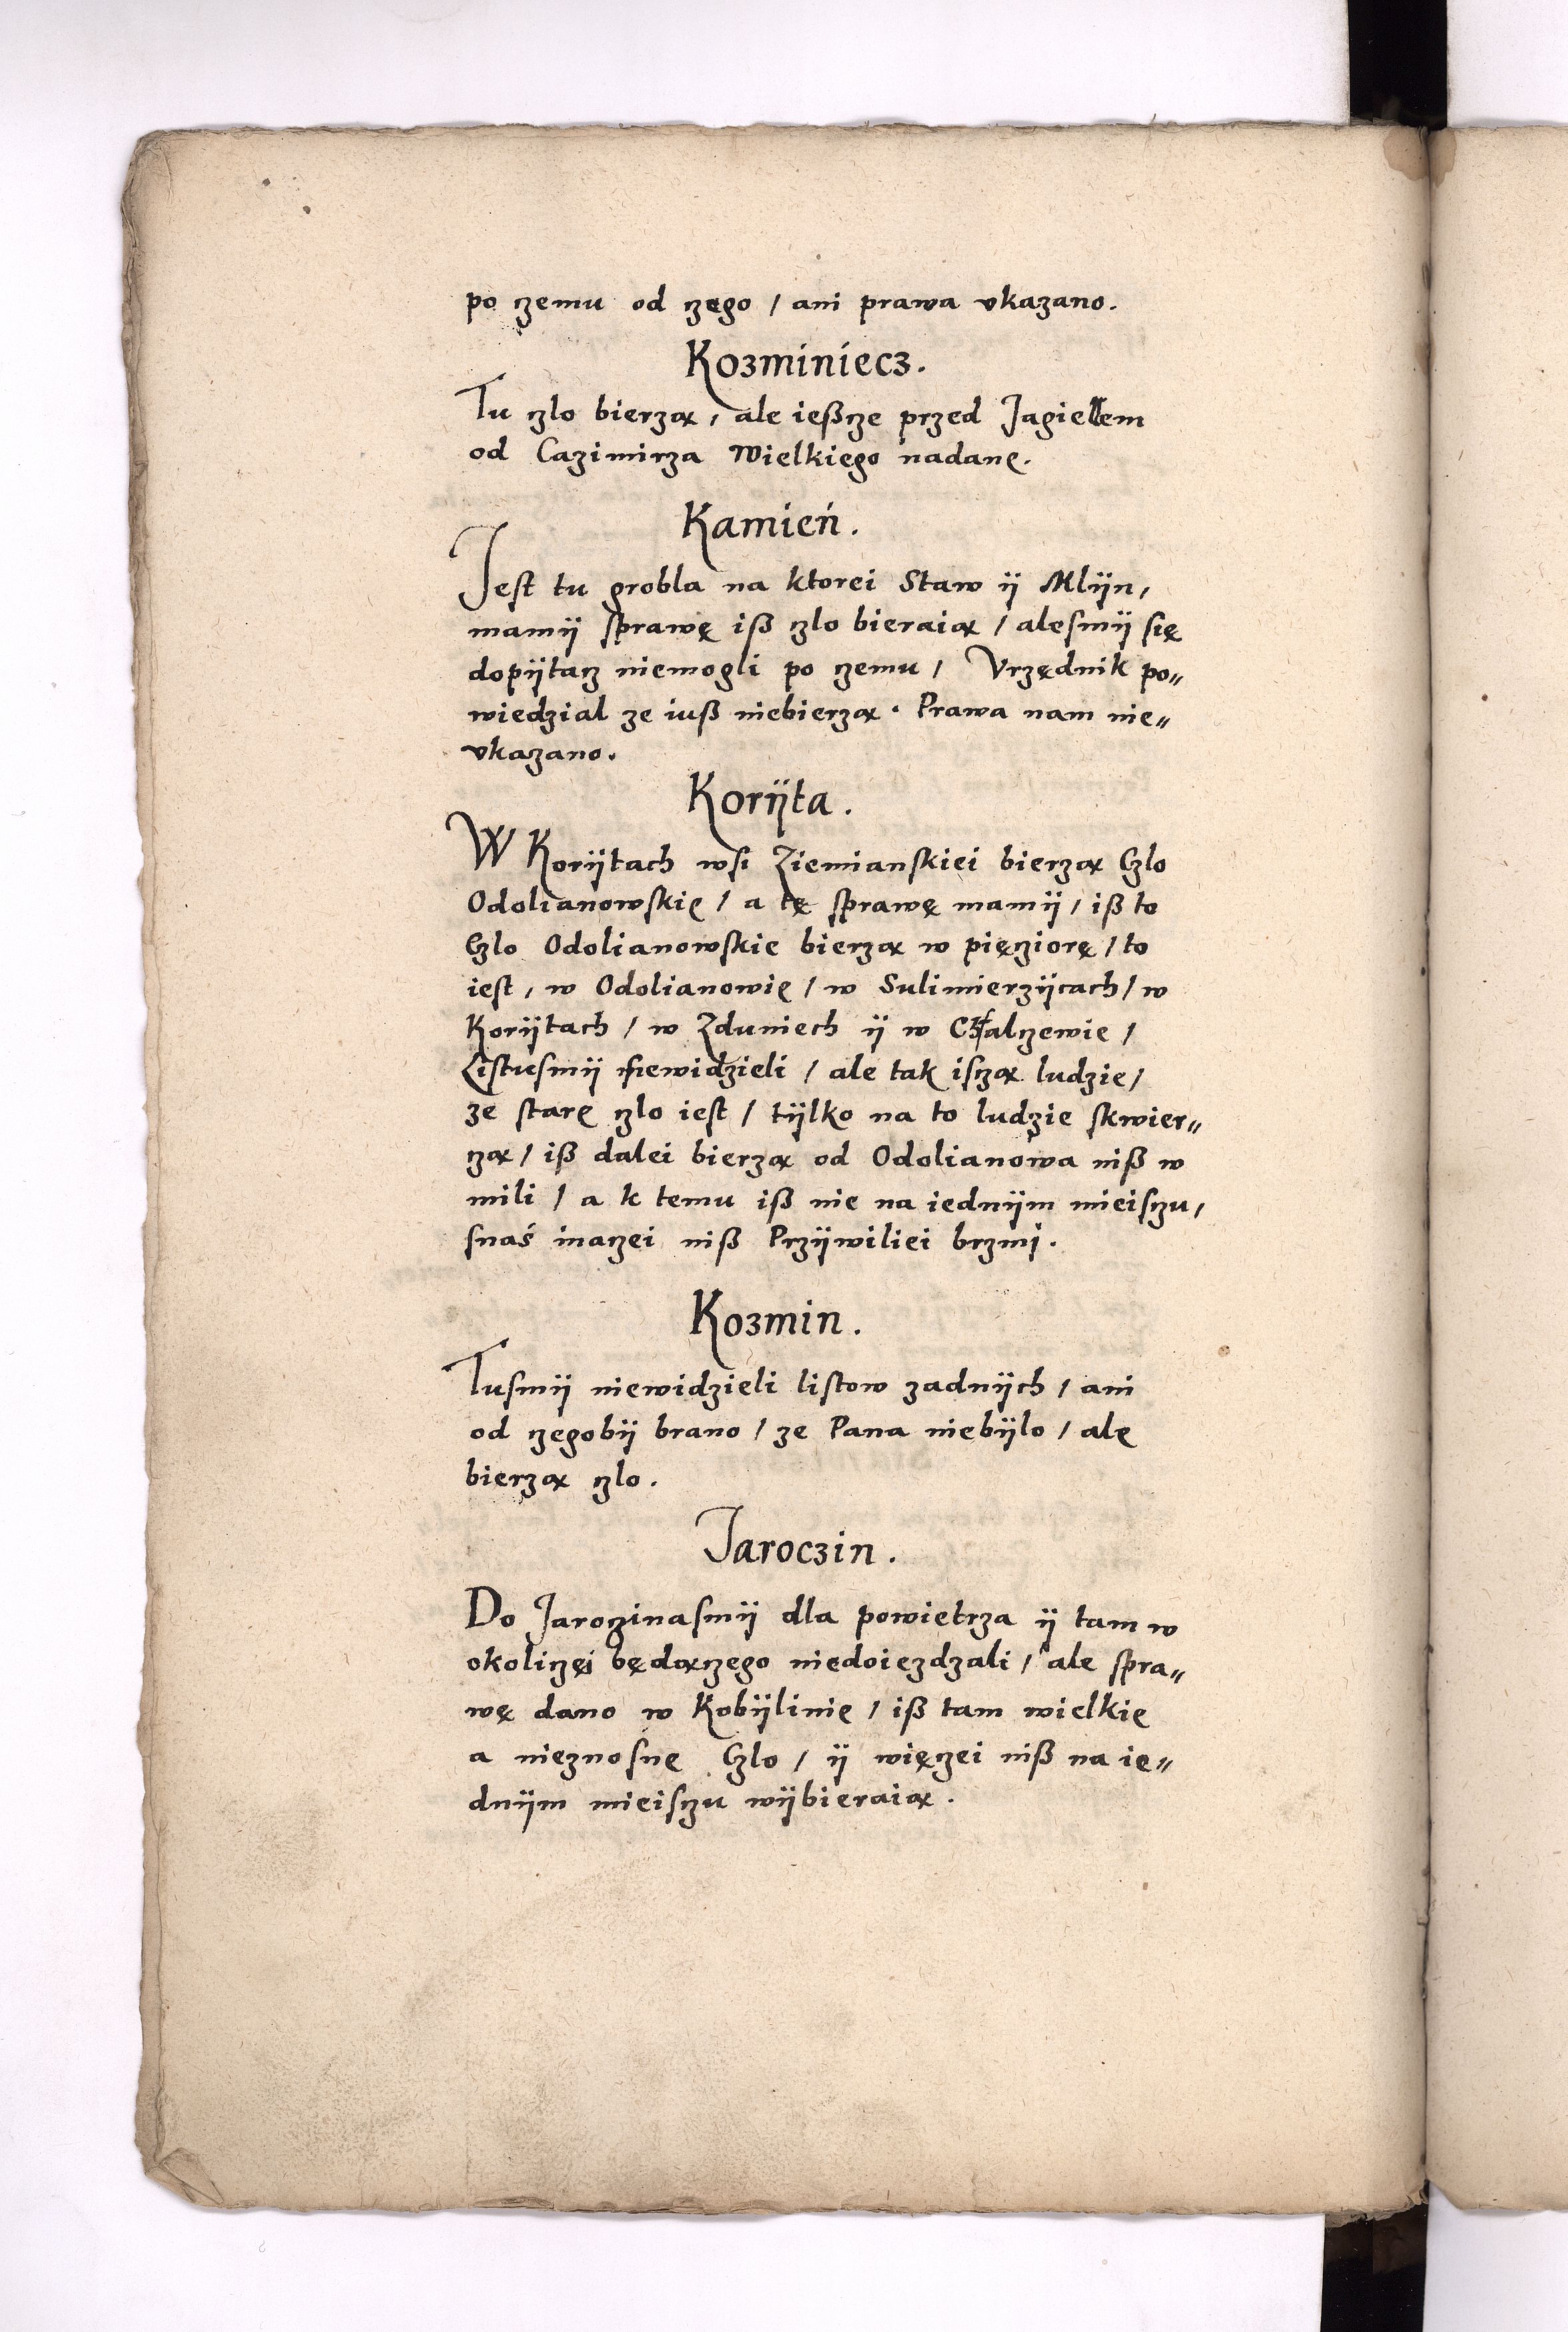 po czemu od czego / ani prawa vkazano.
Kozminiecz.
Tu czlo bierzą, ale ießcze przed Jagiellem
od Cazimirza Wielkiego nadanę.
Kamień.
Jest tu grobla na ktorei Staw ÿ Mlÿn,
mamÿ sprawę iß czlo bieraią / alesmÿ się
dopÿtacz niemogli po czemu / Vrzędnik po„
wiedzial ze iuß niebierzą. Prawa nam nie„
vkazano.
Korÿta.
W Korÿtach wsi Ziemianskiei bierzą Czlo
Odolianowskię / a tę sprawę mamÿ, iß to
Czlo Odolianowskie bierzą w pięcziorę / to
iest, w Odolianowię / w Sulimierzÿcach / w
Korÿtach / w Zduniech ÿ w Chalczewie /
Listusmÿ niewidzieli / ale tak isczą ludzie /
ze starę czlo iest / tÿlko na to ludzie skwier„
czą / iß dalei bierzą od Odolianowa niß w
mili / a k temu iß nie na iednÿm mieisczu,
snaś inaczei niß Przÿwiliei brzmi.
Kozmin.
Tusmÿ niewidzieli listow zadnÿch / ani
od czegobÿ brano / ze Pana niebÿlo / alę
bierzą czlo.
Jaroczin.
Do Jaroczinasmÿ dla powietrza ÿ tam w
okoliczęi będączego niedoiezdzali / ale spra„
wę dano w Kobÿlinię / iß tam wielkię
a nieznosnę Czlo / ÿ więczei niß na ie„
dnÿm mieisczu wÿbieraią.